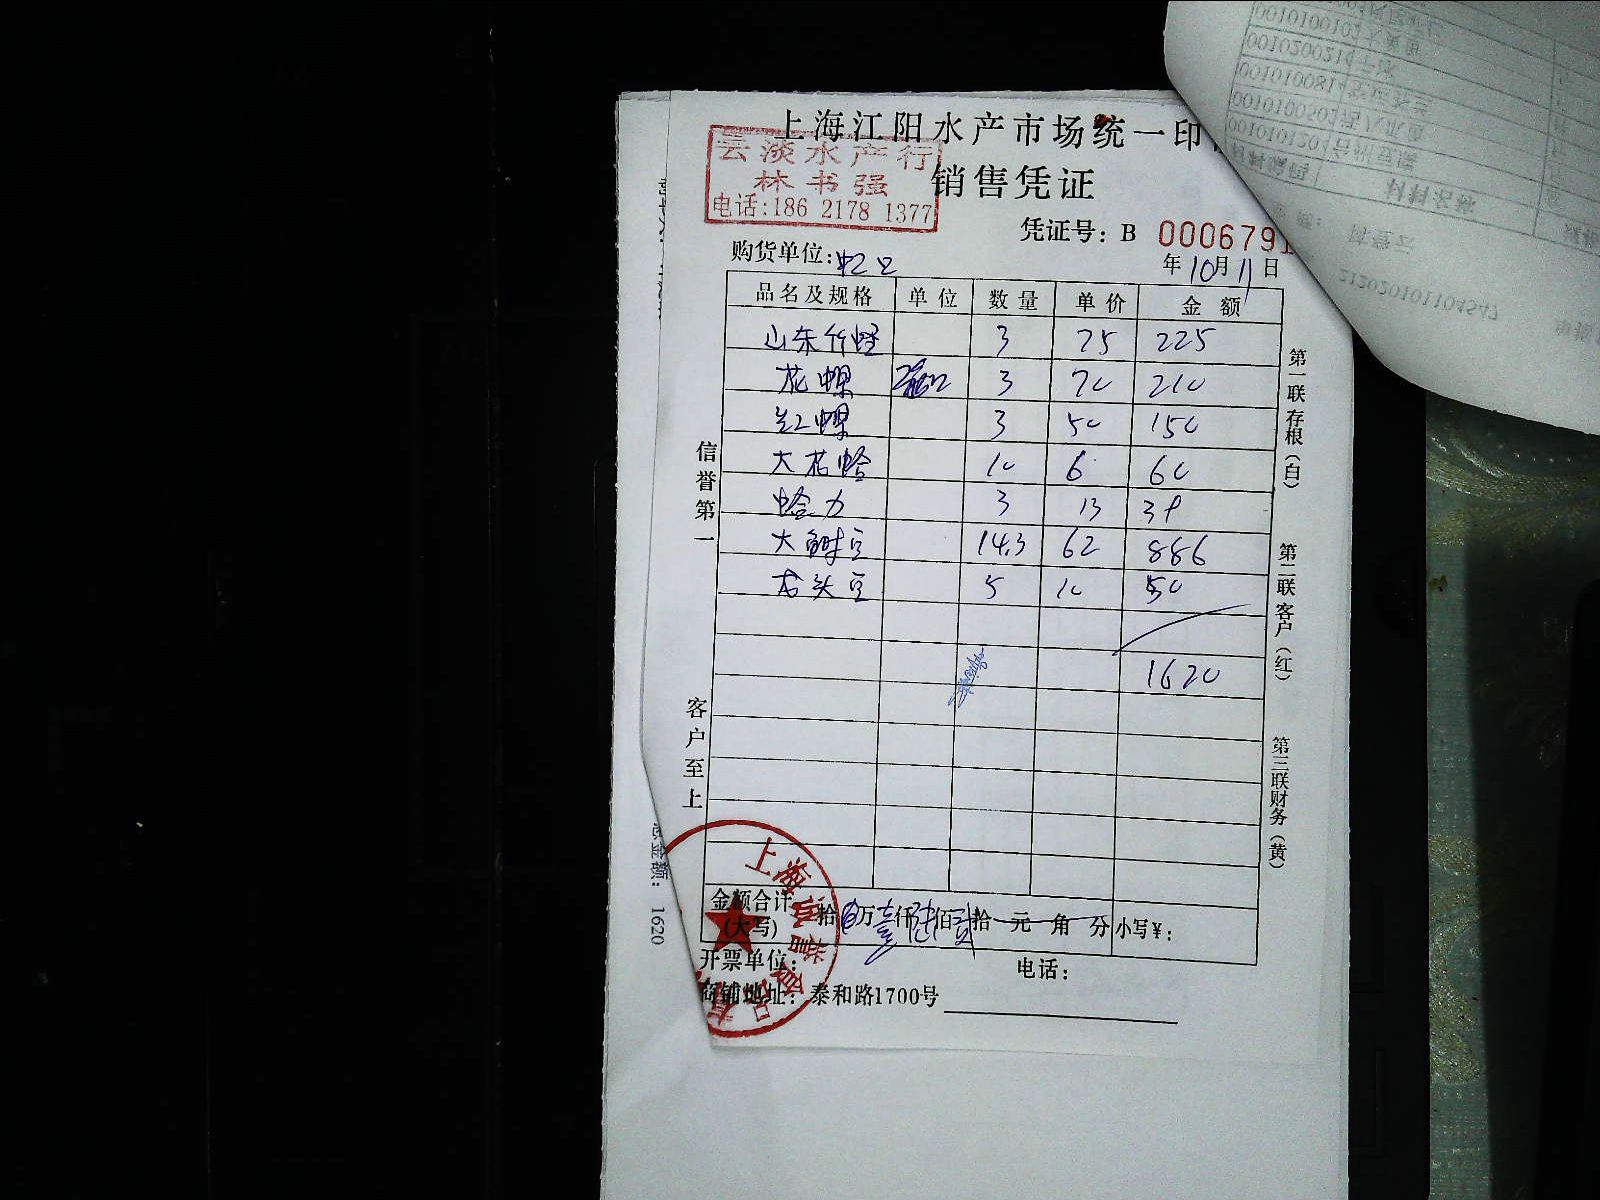 上海江阳水产市场统一印
云淡水产行
林书强
电话:186 2178 1377
销售凭证
凭证号: B 0006791
购货单位:虹口
年10月11日
品名及规格 单位 数量 单价 金额
山东竹蛏 3 75 225
花螺 3 70 210
红螺 3 50 150
大花蛤 10 6 60
蛤力 3 13 39
大鲜豆 14.3 62 886
龙头豆 5 10 50
1620
金额合计
(大写) 拾 万壹仟陆佰贰拾 元 角 分 小写¥:
开票单位: 电话:
商铺地址: 泰和路1700号
信誉第一
客户至上
第一联存根(白)
第二联客户(红)
第三联财务(黄)
总金额: 1620
上海
材料编码 材料名称
001010120
001010050
001010081
001020021
001010010